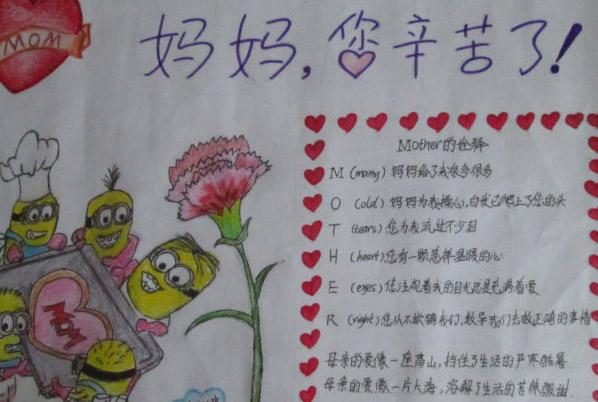 MOM
妈妈,您辛苦了!
Mother的诠释
M (many) 妈妈给了我很多很多
O (old) 妈妈为我操心,白发已爬上了您的头
T (tears) 您为我流过不少泪
H (heart) 您有一颗慈祥温暖的心
E (eyes) 您注视着我的目光总是充满着爱
R (right) 您从不欺骗我们,教导我们去做正确的事情
母亲的爱像一座高山,挡住了生活的严寒酷暑
母亲的爱像一片大海,溶解了生活的苦辣酸甜
MOM